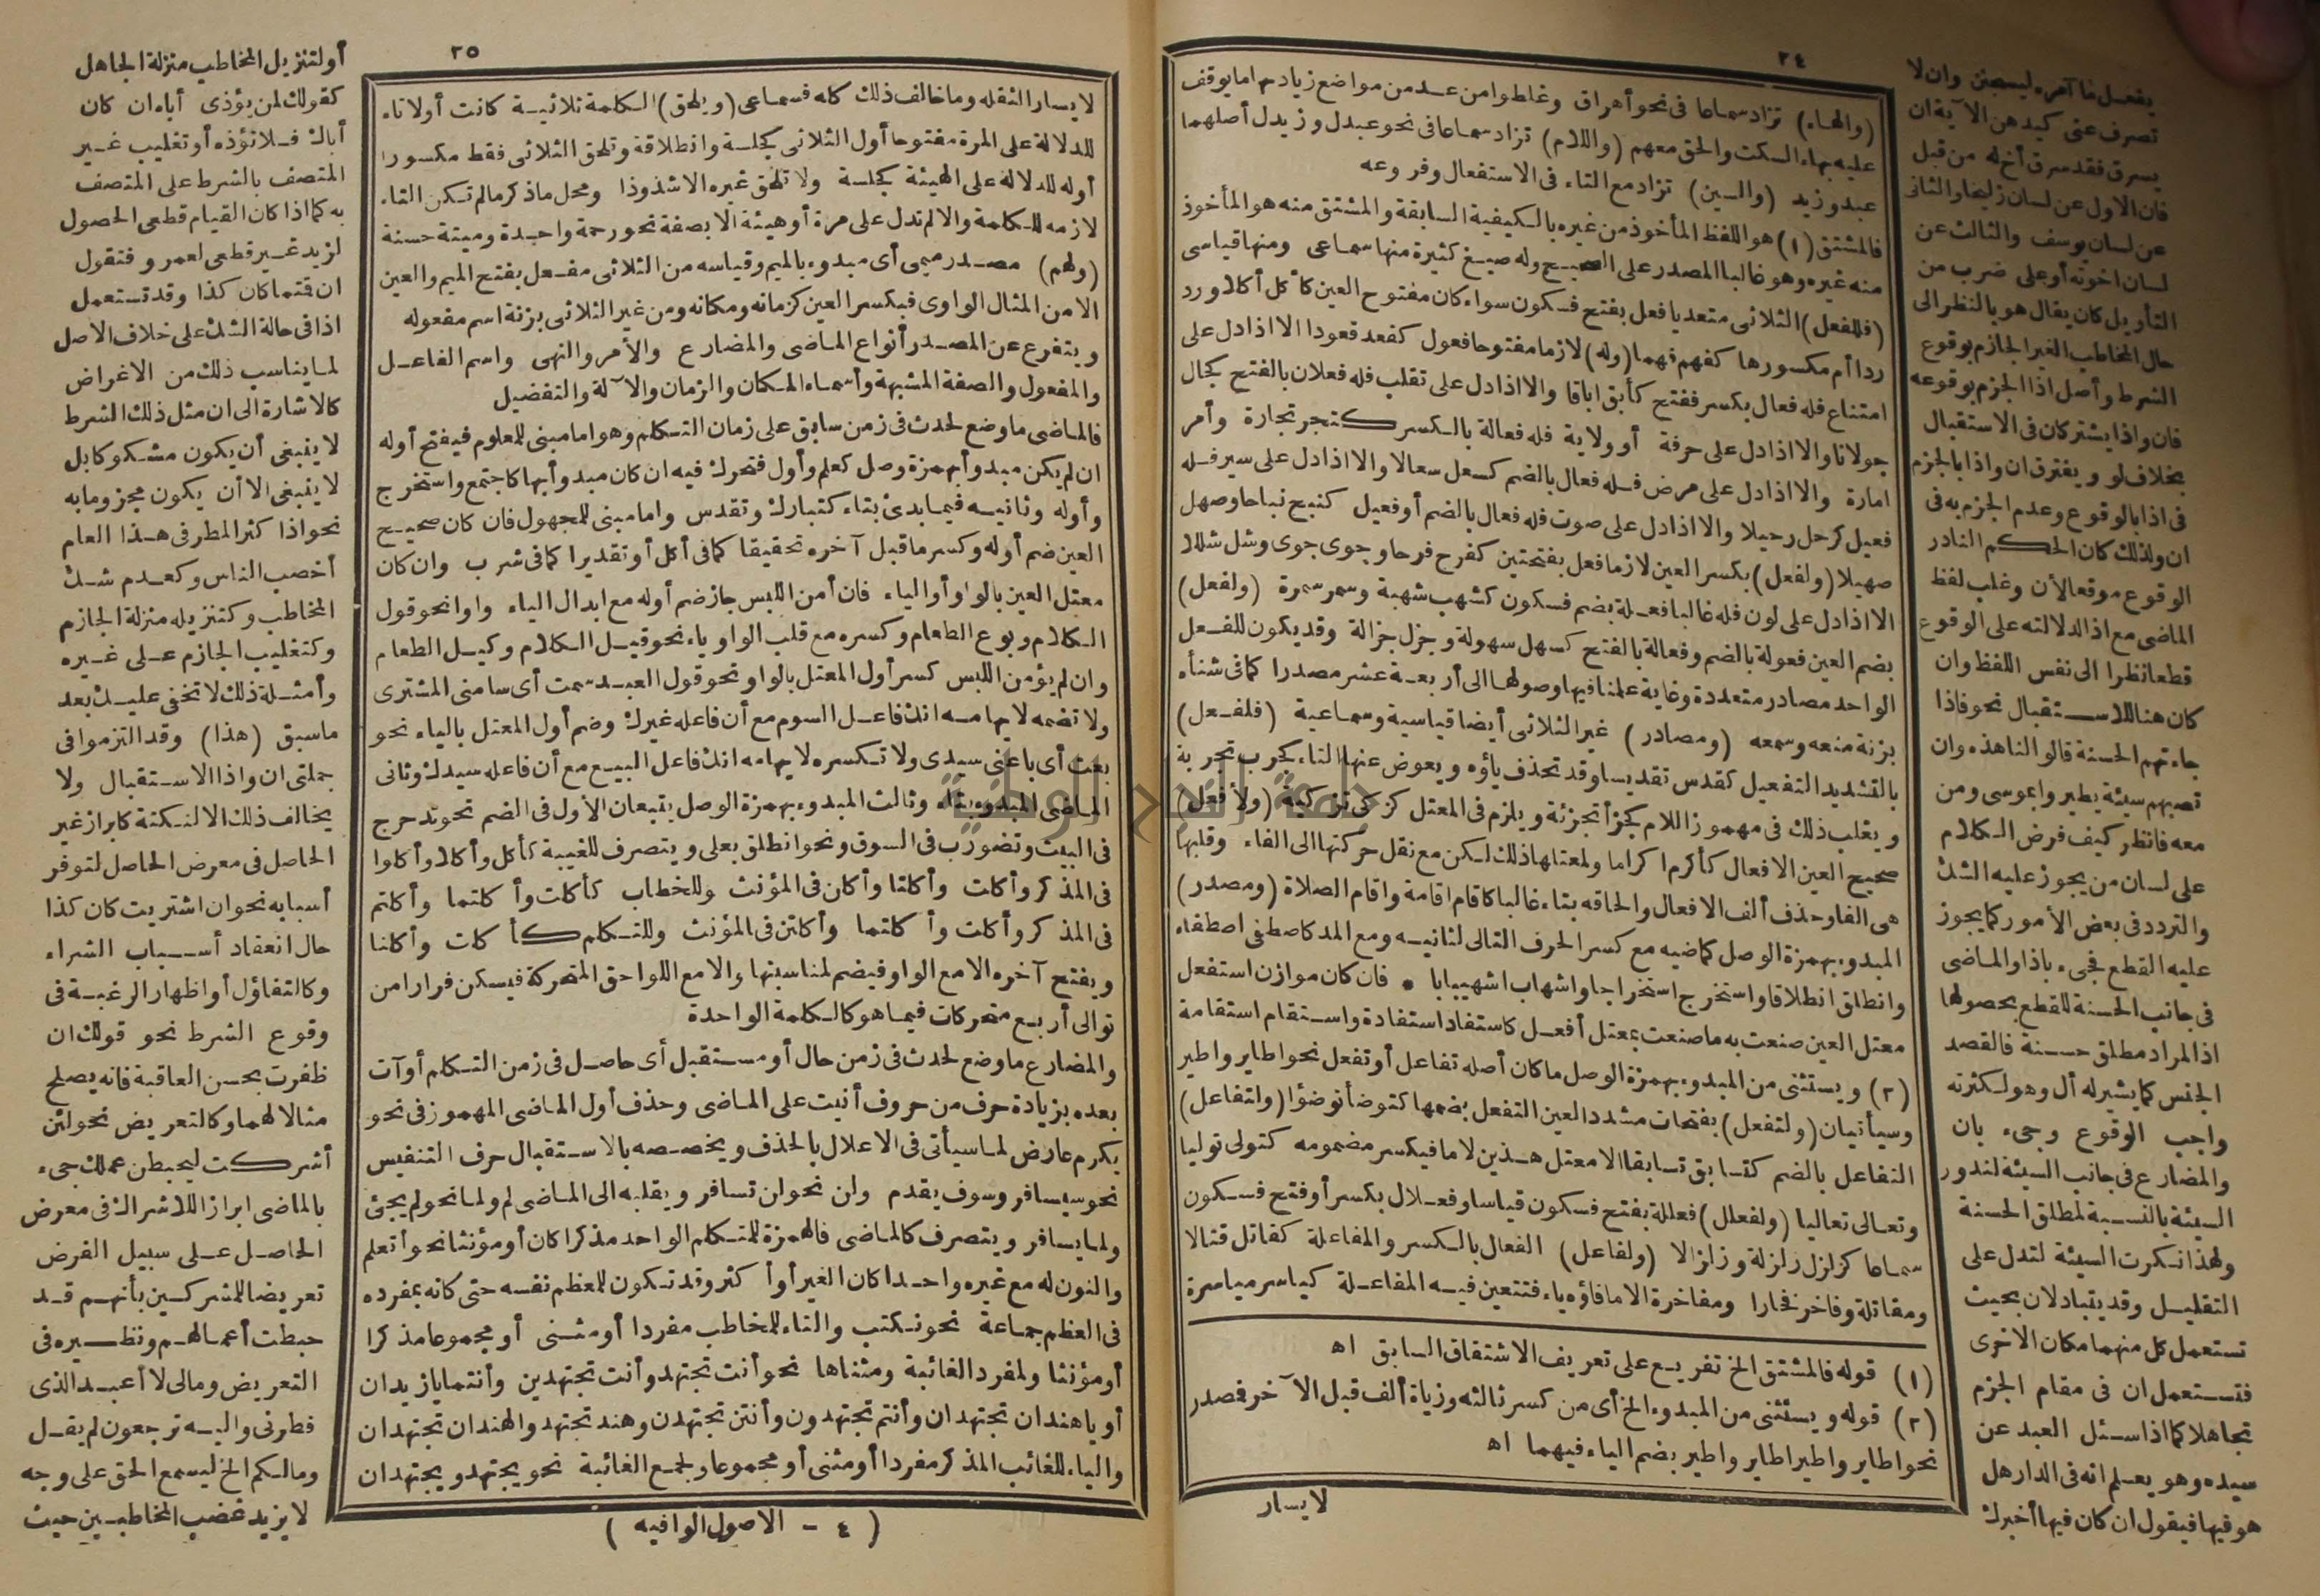 ٢٤
(والهاء) تزاد سماعا فى نحو أهراق وغلطوا من عد من مواضع زيادتها ما يوقف
عليه بهاء السكت والحق معهم (واللام) تزاد سماعا فى نحو عبدل وزيدل أصلهما
عبد وزيد (والسين) تزاد مع التاء فى الاستفعال وفروعه
فالمشتق (١) هو اللفظ المأخوذ من غيره بالكيفية السابقة والمشتق منه هو المأخوذ
منه غيره وهو غالبا المصدر على الصحيح وله صيغ كثيرة منها سماعى ومنها قياسى
(فللفعل) الثلاثى متعديا فعل بفتح فسكون سواء كان مفتوح العين كأكل أكلا ورد
ردا أم مكسورها كفهم فهما (وله) لازما مفتوحا فعول كقعد قعودا الا اذا دل على
امتناع فله فعال بكسر ففتح كأبق اباقا والا اذا دل على تقلب فله فعلان بالفتح كجال
جولانا والا اذا دل على حرفة أو ولاية فله فعالة بالكسر كتجر تجارة وأمر
امارة والا اذا دل على مرض فله فعال بالضم كسعل سعالا والا اذا دل على سير فله
فعيل كرحل رحيلا والا اذا دل على صوت فله فعال بالضم أو فعيل كنبح نباحا وصهل
صهيلا (ولفعل) بكسر العين لازما فعل بفتحتين كفرح فرحا وجوى جوى وشل شللا
الا اذا دل على لون فله غالبا فعلة بضم فسكون كشهب شهبة وسمر سمرة (ولفعل)
بضم العين فعولة بالضم وفعالة بالفتح كسهل سهولة وجزل جزالة وقد يكون للفعل
الواحد مصادر متعددة وغاية علمنا فيها وصولها الى أربعة عشر مصدرا كما فى شنأه
بزنة منعه وسمعه (ومصادر) غير الثلاثى أيضا قياسية وسماعية (فلفعل)
بالتشديد التفعيل كقدس تقديسا وقد تحذف ياؤه ويعوض عنها التاء كجرب تجربة
ويغلب ذلك فى مهموز اللام كجزأ تجزئة ويلزم فى المعتل كزكى تزكية (ولأفعل)
صحيح العين الافعال كأكرم اكراما ولمعتلها ذلك لكن مع نقل حركتها الى الفاء وقلبها
هى الفا وحذف ألف الافعال والحاقه بتاء غالبا كاقام اقامة واقام الصلاة (ومصدر)
المبدوء بهمزة الوصل كماضيه مع كسر الحرف التالى لثانيه ومع المد كاصطفى اصطفاء
وانطلق انطلاقا واستخرج استخراجا واشهاب اشهيبابا • فان كان موازن استفعل
معتل العين صنعت به ما صنعت بمعتل أفعل كاستفاد استفادة واستقام استقامة
(٢) ويستثنى من المبدوء بهمزة الوصل ما كان أصله تفاعل أو تفعل نحو اطاير واطير
وسيأتيان (ولتفعل) بفتحات مشدد العين التفعل بضمها كتوضأ توضؤا (ولتفاعل)
التفاعل بالضم كتسابق تسابقا الا معتل هذين لاما فيكسر مضمومه كتولى توليا
وتعالى تعاليا (ولفعلل) فعللة بفتح فسكون قياسا وفعلال بكسر أو فتح فسكون
سماعا كزلزل زلزلة وزلزالا (ولفاعل) الفعال بالكسر والمفاعلة كقاتل قتالا
ومقاتلة وفاخر فخارا ومفاخرة الا ما فاؤه ياء فتتعين فيه المفاعلة كياسر مياسرة
(١) قوله فالمشتق الخ تفريع على تعريف الاشتقاق السابق اه
(٢) قوله ويستثنى من المبدوء الخ أى من كسر ثالثه وزياة ألف قبل الآخر فمصدر
نحو اطاير واطير اطاير واطير بضم الياء فيهما اه
لايسار
يفعل ما آمره ليسجنن وان لا
تصرف عنى كيدهن الآية ان
يسرق فقد سرق أخ له من قبل
فان الاول عن لسان زليخا والثانى
عن لسان يوسف والثالث عن
لسان اخوته أو على ضرب من
التأويل كان يقال هو بالنظر الى
حال المخاطب الغير الجازم بوقوع
الشرط وأصل اذا الجزم بوقوعه
فان واذا يشتركان فى الاستقبال
بخلاف لو ويفترق ان واذا بالجزم
فى اذا بالوقوع وعدم الجزم به فى
ان ولذلك كان الحكم النادر
الوقوع موقعا لأن وغلب لفظ
الماضى مع اذا لدلالته على الوقوع
قطعا نظرا الى نفس اللفظ وان
كان هنا للاستقبال نحو فاذا
جاءتهم الحسنة قالوا لنا هذه وان
تصبهم سيئة يطيروا بموسى ومن
معه فانظر كيف فرض الكلام
على لسان من يجوز عليه الشك
والتردد فى بعض الأمور كما يجوز
عليه القطع فجىء باذا والماضى
فى جانب الحسنة للقطع بحصولها
اذ المراد مطلق حسنة فالقصد
الجنس كما يشير له أل وهو لكثرته
واجب الوقوع وجىء بان
والمضارع فى جانب السيئة لندور
السيئة بالنسبة لمطلق الحسنة
ولهذا نكرت السيئة لتدل على
التقليل وقد يتبادلان بحيث
تستعمل كل منهما مكان الاخرى
فتستعمل ان فى مقام الجزم
تجاهلا كما اذا سئل العبد عن
سيده وهو يعلم انه فى الدار هل
هو فيها فيقول ان كان فيها أخبرك
٢٥
لايسار الثقله وما خالف ذلك كله فسماعى (ويلحق) الكلمة ثلاثية كانت أولا تاء
للدلالة على المرة مفتوحا أول الثلاثى كجلسة وانطلاقة وتلحق الثلاثى فقط مكسورا
أوله للدلالة على الهيئة كجلسة ولا تلحق غيره الا شذوذا ومحل ما ذكر ما لم تكن التاء
لازمه للكلمة والا لم تدل على مرة أو هيئة الا بصفة نحو رحمة واحدة وميتة حسنة
(ولهم) مصدر ميمى أى مبدوء بالميم وقياسه من الثلاثى مفعل بفتح الميم والعين
الا من المثال الواوى فبكسر العين كزمانه ومكانه ومن غير الثلاثى بزنة اسم مفعوله
ويتفرع عن المصدر أنواع الماضى والمضارع والأمر والنهى واسم الفاعل
والمفعول والصفة المشبهة وأسماء المكان والزمان والآلة والتفضيل
فالماضى ما وضع لحدث فى زمن سابق على زمان التكلم وهو اما مبنى للمعلوم فيفتح أوله
ان لم يكن مبدوأ بهمزة وصل كعلم وأول فتحرك فيه ان كان مبدوأ بها كاجتمع واستخرج
وأوله وثانيه فيما بدئ بتاء كتبارك وتقدس واما مبنى للمجهول فان كان صحيح
العين ضم أوله وكسر ما قبل آخره تحقيقا كما فى أكل أو تقديرا كما فى شرب وان كان
معتل العين بالواو أو الياء فان أمن اللبس جاز ضم أوله مع ابدال الياء واوا نحو قول
الكلام وبوع الطعام وكسره مع قلب الواو ياء نحو قيل الكلام وكيل الطعام
وان لم يؤمن اللبس كسر أول المعتل بالواو نحو قول العبد سمت أى سامنى المشترى
ولا تضمه لايهامه انك فاعل السوم مع أن فاعله غيرك وضم أول المعتل بالياء نحو
بعت أى باعنى سيدى ولا تكسره لايهامه انك فاعل البيع مع أن فاعله سيدك وثانى
الماضى المبدوء بتاء وثالث المبدوء بهمزة الوصل يتبعان الأول فى الضم نحو تدحرج
فى البيت وتضورب فى السوق ونحو انطلق بعلى ويتصرف للغيبة كأكل وأكلا وأكلوا
فى المذكر وأكلت وأكلتا وأكلن فى المؤنث وللخطاب كأكلت وأكلتما وأكلتم
فى المذكر وأكلت وأكلتما وأكلتن فى المؤنث وللتكلم كأكلت وأكلنا
ويفتح آخره الا مع الواو فيضم لمناسبتها والا مع اللواحق المتحركة فيسكن فرارا من
توالى أربع متحركات فيما هو كالكلمة الواحدة
والمضارع ما وضع لحدث فى زمن حال أو مستقبل أى حاصل فى زمن التكلم أو آت
بعده بزيادة حرف من حروف أنيت على الماضى وحذف أول الماضى المهموز فى نحو
يكرم عارض لما سيأتى فى الاعلال بالحذف ويخصصه بالاستقبال حرف التنفيس
نحو سيسافر وسوف يقدم ولن نحو لن تسافر ويقلبه الى الماضى لم ولما نحو لم يجئ
ولما يسافر ويتصرف كالماضى فالهمزة للمتكلم الواحد مذكرا كان أو مؤنثا نحو أتعلم
والنون له مع غيره واحدا كان الغير أو أكثر وقد تكون للمعظم نفسه حتى كانه بمفرده
فى العظم جماعة نحو نكتب والتاء للمخاطب مفردا أو مثنى أو مجموعا مذكرا
أو مؤنثا ولمفرد الغائبة ومثناها نحو أنت تجتهد وأنت تجتهدين وأنتما يا زيدان
أو يا هندان تجتهدان وأنتم تجتهدون وأنتن تجتهدن وهند تجتهد والهندان تجتهدان
والياء للغائب المذكر مفردا أو مثنى أو مجموعا ولجمع الغائبة نحو يجتهد ويجتهدان
(٤ - الاصول الوافيه)
أو لتنزيل المخاطب منزلة الجاهل
كقولك لمن يؤذى أباه ان كان
أباك فلا تؤذه أو تغليب غير
المتصف بالشرط على المتصف
به كما اذا كان القيام قطعى الحصول
لزيد غير قطعى لعمرو فتقول
ان قتما كان كذا وقد تستعمل
اذا فى حالة الشك على خلاف الاصل
لما يناسب ذلك من الاغراض
كالاشارة الى ان مثل ذلك الشرط
لا ينبغى أن يكون مشكوكا بل
لا ينبغى الا أن يكون مجزوما به
نحو اذا كثر المطر فى هذا العام
أخصب الناس وكعدم شك
المخاطب وكتنزيله منزلة الجازم
وكتغليب الجازم على غيره
وأمثلة ذلك لا تخفى عليك بعد
ما سبق (هذا) وقد التزموا فى
جملتى ان واذا الاستقبال ولا
يخالف ذلك الا لنكتة كابراز غير
الحاصل فى معرض الحاصل لتوفر
أسبابه نحو ان اشتريت كان كذا
حال انعقاد أسباب الشراء
وكالتفاؤل أو اظهار الرغبة فى
وقوع الشرط نحو قولك ان
ظفرت بحسن العاقبة فانه يصلح
مثالا لهما وكالتعريض نحو لئن
أشركت ليحبطن عملك جىء
بالماضى ابرازا للاشراك فى معرض
الحاصل على سبيل الفرض
تعريضا للمشركين بأنهم قد
حبطت أعمالهم ونظيره فى
التعريض ومالى لا أعبد الذى
فطرنى واليه ترجعون لم يقل
ومالكم الخ ليسمع الحق على وجه
لا يزيد غضب المخاطبين حيث
جامعة النجاح الوطنية